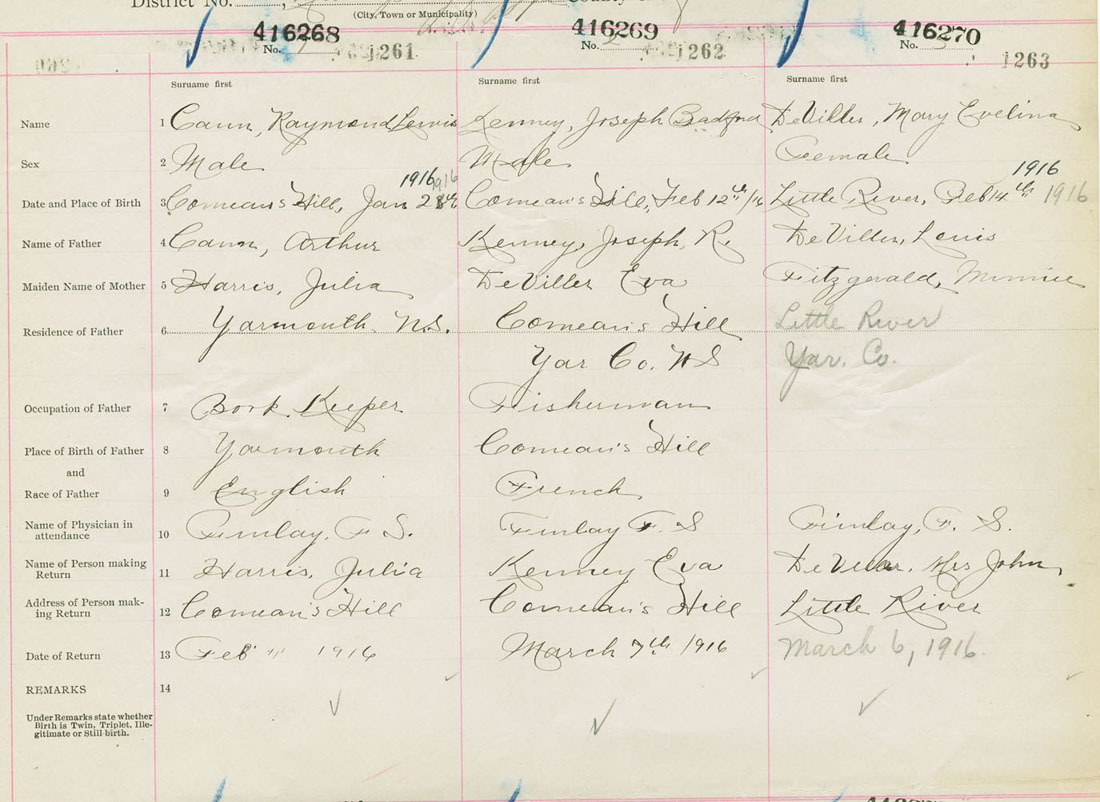 District No.
(City, Town or Municipality)
416268 416269 416270
No. 1261 No. 2 1262 No. 3 1263
Surname first Surname first Surname first
Name 1 Cann, Raymond Lewis Kenney, Joseph Bradford DeViller, Mary Evelina
Sex 2 Male Male Female
1916 1916 1916
Date and Place of Birth 3 Comeau's Hill, Jan 28th Comeau's Hill, Feb 12th/16 Little River, Feb 14th 1916
Name of Father 4 Cann, Arthur Kenney, Joseph, R. DeViller, Louis
Maiden Name of Mother 5 Harris, Julia DeViller Eva Fitzgerald, Minnie
Residence of Father 6 Yarmouth N.S. Comeau's Hill Little River
Yar Co. N S Yar. Co.
Occupation of Father 7 Book Keeper Fisherman
Place of Birth of Father 8 Yarmouth Comeau's Hill
and
Race of Father 9 English French
Name of Physician in
attendance 10 Finlay, F. S. Finlay F. S Finlay, F. S.
Name of Person making
Return 11 Harris, Julia Kenney Eva DeViller, Mrs John
Address of Person mak-
ing Return 12 Comeau's Hill Comeau's Hill Little River
Date of Return 13 Feb " 1916 March 7th 1916 March 6, 1916.
REMARKS 14
Under Remarks state whether
Birth is Twin, Triplet, Ille-
gitimate or Still-birth.